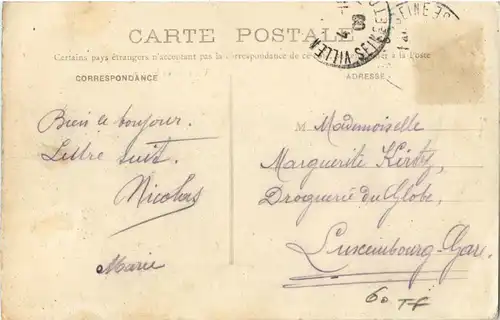 CARTE POSTALE
Certains pays étrangers n'acceptant pas la correspondance de ce à la Poste
CORRESPONDANCE
ADRESSE
Bien le bonjour.
Lettre suit.
Nicolas
Marie
M Mademoiselle
Marguerite
Droguerie du Globe,
Luxembourg-Gare.
60